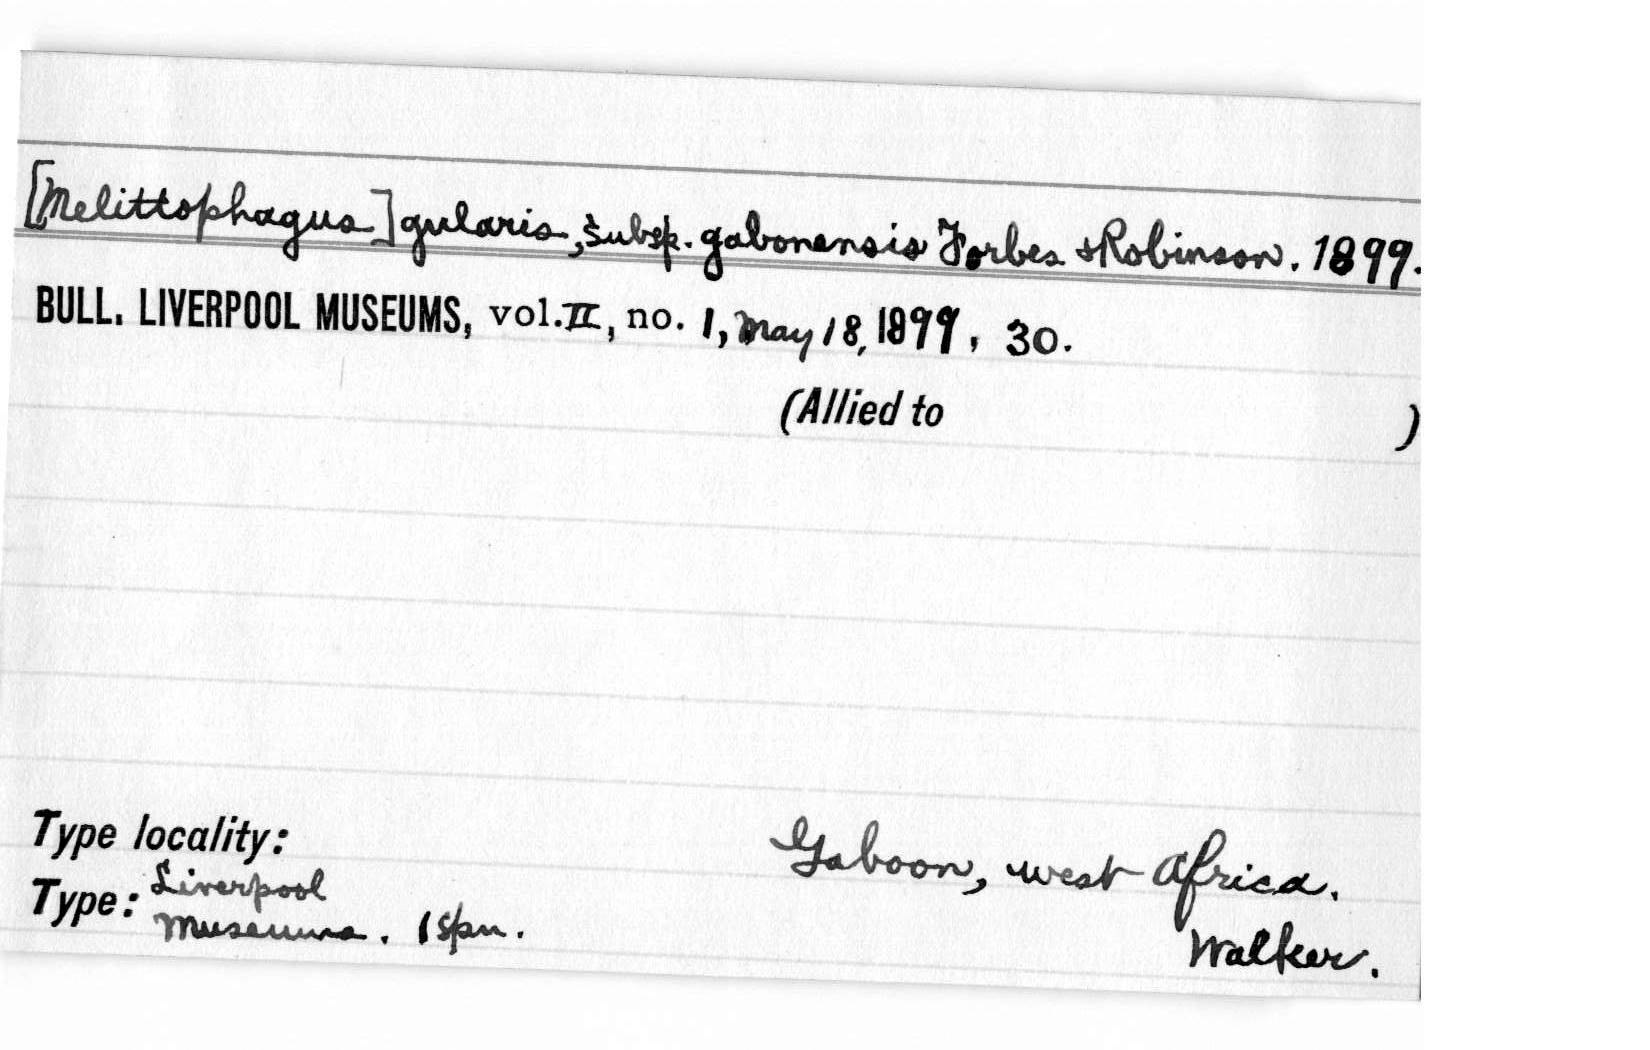 [Melittophagus] gularis, subsp. gabonensis Forbes & Robinson. 1899.
BULL. LIVERPOOL MUSEUMS, vol. II, no. 1, May 18, 1899, 30.
(Allied to )
Type locality:
Gaboon, west Africa.
Type: Liverpool
Museums. 1 spm.
Walker.